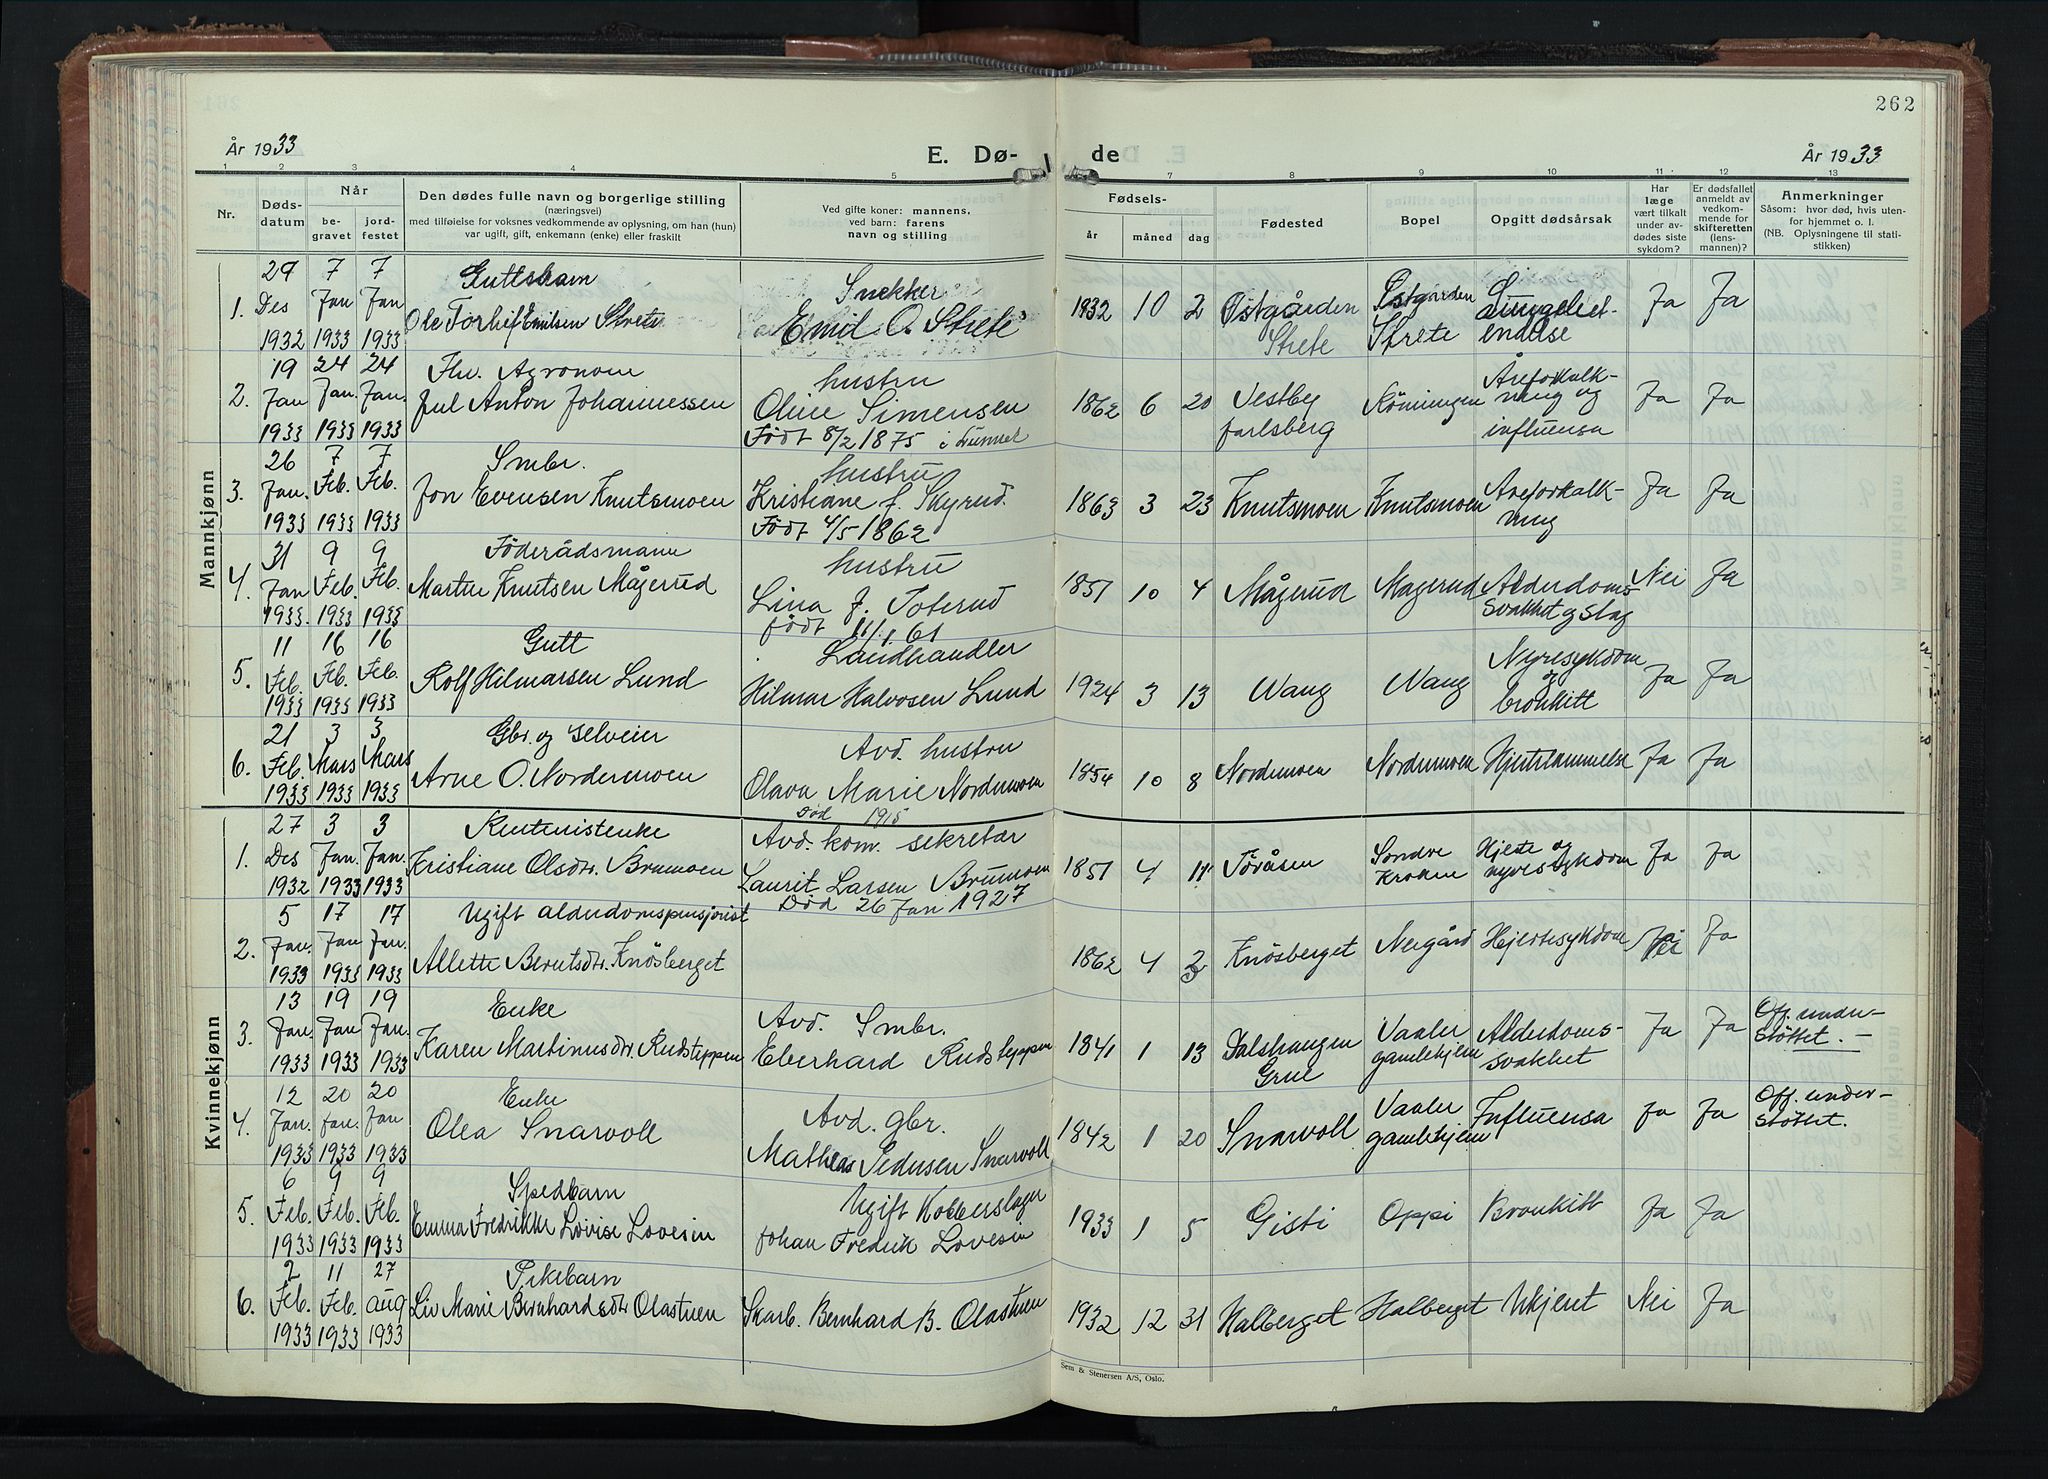 262
År 1933
E. Dø-
de
År 1933
1 2 3 4 5 7 8 9 10 11 12 13
Nr.
Døds-
datum
Når
be-
gravet
jord-
festet
Den dødes fulle navn og borgerlige stilling
(næringsvei)
med tilføielse for voksnes vedkommende av oplysning, om han (hun)
var ugift, gift, enkemann (enke) eller fraskilt
Ved gifte koner: mannens,
ved barn: farens
navn og stilling
Fødsels-
år måned dag
Fødested
Bopel
Opgitt dødsårsak
Har
læge
vært tilkalt
under av-
dødes siste
sykdom?
Er dødsfallet
anmeldt av
vedkom-
mende for
skifteretten
(lens-
mannen)?
Anmerkninger
Såsom: hvor død, hvis uten-
for hjemmet o. l.
(NB. Oplysningene til stati-
stikken)
Mannkjønn
1. 29 Des 1932 7 Jan 1933 7 Jan 1933
Guttebarn
Ole Torleif Emilsen Strete
Snekker
Emil O. Strete
1932 10 2
Østgården
Strete
Østgården
Strete
Lungebet-
endelse
Ja Ja
2. 19 Jan 1933 24 Jan. 1933 24 Jan. 1933
Fhv. Agronom
Jul Anton Johannessen
hustru
Oline Simensen
Født 8/2 1875 i Lunner
1862 6 20
Vestby
Jarlsberg
Könningen
Åreforkalk-
ning og
influensa
Ja Ja
3. 26 Jan. 1933 7 Feb. 1933 7 Feb. 1933
Smbr.
Jon Evensen Knutsmoen
hustru
Kristiane f. Skyrud
Født 4/5 1862
1863 3 23
Knutsmoen
Knutsmoen
Åreforkalk-
ning
Ja Ja
4. 31 Jan 1933. 9 Feb. 1933 9 Feb. 1933
Föderådsmann
Martin Knutsen Mågerud
hustru
Lina f. Toterud
født 11/1 61
1851 10 4
Mågerud
Magerud
Alderdoms-
svakhet og slag
Nei Ja
5. 11 Feb. 1933 16 Feb. 1933 16 Feb. 1933
Gutt
Rolf Hilmarsen Lund
Landhandler
Hilmar Halvosen Lund
1924 3 13
Vang
Vang
Nyresykdom
og
bronkitt
Ja Ja
6. 21 Feb. 1933 3 Mars 1933 3 Mars 1933
Gbr. og selveier
Arne O. Nordermoen
Avd. hustru
Olava Marie Nordermoen
død 1915
1854 10 8
Nordermoen
Nordermoen
Hjertelammelse
Ja Ja
Kvinnekjønn
1. 27 Des 1932 3 Jan. 1933 3 Jan. 1933
Rentenistenke
Kristiane Olsdtr. Brumoen
Avd. kom. sekretær
Laurit Larsen Brumoen
Død 26 Jan 1927
1851 4 11
Töråsen
Söndre
Hjerte og
nyresykdom
Ja Ja
2. 5 Jan. 1933 17 Jan 1933 17 Jan. 1933
Ugift alderdomspensjonist
Allette Berntsdtr. Knösberget
1862 4
Knösberget
Neigård
Hjertesykdom
Ja
3. 13 Jan. 1933 19 Jan 1933 19 Jan. 1933
Enke
Karen Martinusdtr. Rudsteppen
Avd. Smbr.
Eberhard Rudsteppen
1841 1 13
Dalshaugen
Grue
Vaaler
gamlehjem
Alderdoms-
svakhet
Ja Ja
Off. under-
støttet. -
4. 12 Jan. 1933 20 jan. 1933 20 jan 1933
Enke
Olea Snarvoll
Avd. gbr.
Mathias Pedersen Snarvoll
1842 1 20
Snarvoll
Vaaler
gamlehjem
Influensa
Ja Ja
Off. under-
støttet.
5. 6 Feb. 1933 9 Feb. 1933 9 Feb. 1933
Spedbarn
Emma Fredrikke Lovise Lovesin
Ugift Kobberslager
Johan Fredrik Lovesin
1933 1 5
Gisti
Oppi
Bronkitt
Ja Ja
6. 2 Feb. 1933 11 Feb. 1933 27 aug 1933
Pikebarn
Liv Marie Bernhardsdtr Olastuen
Skarb. Bernhard B. Olastuen
1932 12 31
Halberget
Halberget
Ukjent
Nei Ja
Sem & Stenersen A/S, Oslo.